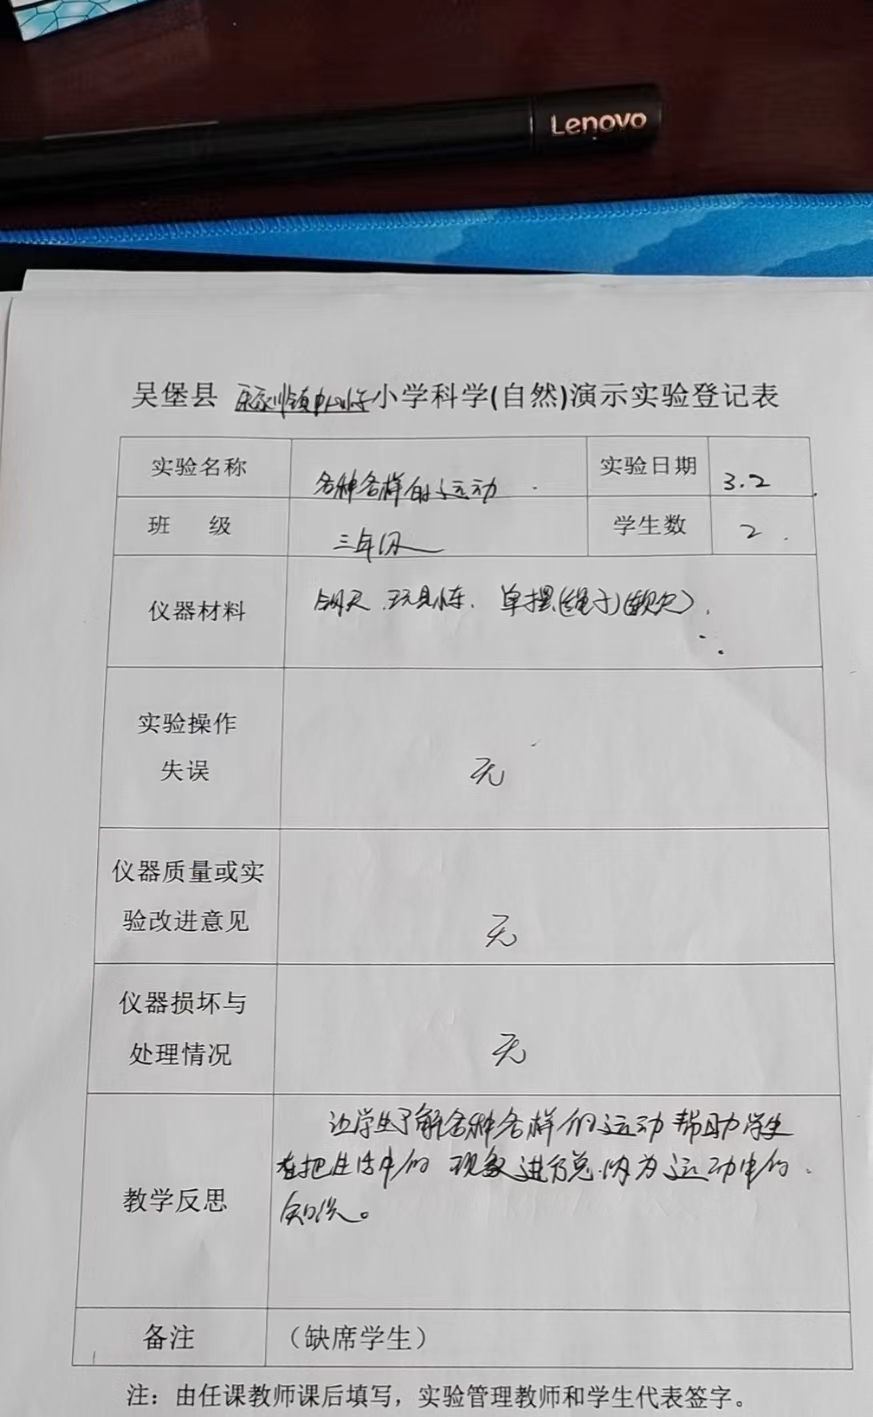 Lenovo
吴堡县 镇中心小学小学科学(自然)演示实验登记表
实验名称 各种各样的运动 实验日期 3.2
班 级 三年级 学生数 2
仪器材料 玩具小车、单摆(绳子)
实验操作
失误
无
仪器质量或实
验改进意见
无
仪器损坏与
处理情况
无
让学生了解各种各样的运动帮助学生
在把生活中的 现象进行总 为运动中的
教学反思
知识。
备注 (缺席学生)
注：由任课教师课后填写，实验管理教师和学生代表签字。